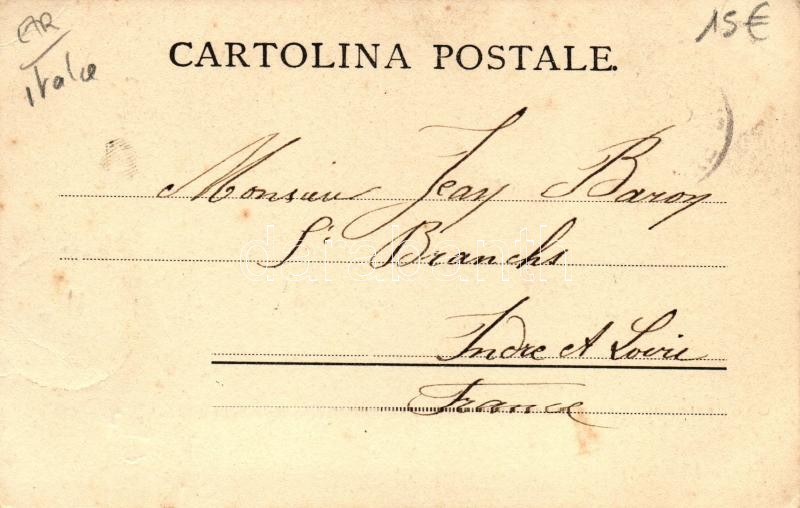 15€
italie
CARTOLINA POSTALE.
Monsieur Jean Baron
St Branchs
Indre et Loire
France
darabanth